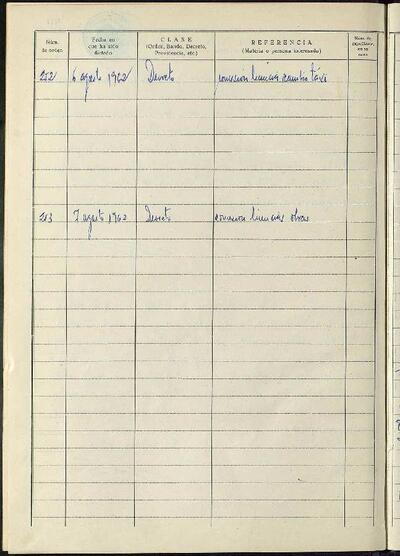 Núm. de orden
Fecha en que ha sido dictado
CLASE
(Orden, Bando, Decreto, Providencia, etc.)
REFERENCIA
(Materia o persona interesada)
Núm. de
212 6 agosto 1962 Decreto concesión licencia cambio taxi
213 7 agosto 1962 Decreto concesion licencias obras